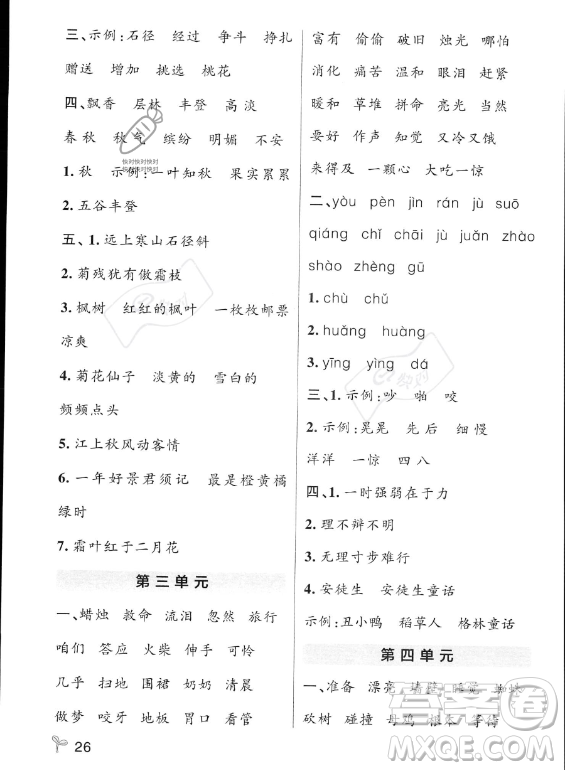 三、示例:石径 经过 争斗 挣扎
赠送 增加 挑选 桃花
四、飘香 层林 丰登 高淡
春秋 秋气 缤纷 明媚 不安
1. 秋 示例:一叶知秋 果实累累
2. 五谷丰登
五、1. 远上寒山石径斜
2. 菊残犹有傲霜枝
3. 枫树 红红的枫叶 一枚枚邮票
凉爽
4. 菊花仙子 淡黄的 雪白的
频频点头
5. 江上秋风动客情
6. 一年好景君须记 最是橙黄橘
绿时
7. 霜叶红于二月花
第三单元
一、蜡烛 救命 流泪 忽然 旅行
咱们 答应 火柴 伸手 可怜
几乎 扫地 围裙 奶奶 清晨
做梦 咬牙 地板 胃口 看管
26
富有 偷偷 破旧 烛光 哪怕
消化 痛苦 温和 眼泪 赶紧
暖和 草堆 拼命 亮光 当然
要好 作声 知觉 又冷又饿
来得及 一颗心 大吃一惊
二、yòu pèn jìn rán jù suō
qiáng chǐ chái qì juǎn zhào
shào zhèng gū
1. chù chǔ
2. huǎng huàng
3. yīng yìng dá
三、1. 示例:吵 啪 咬
2. 示例:晃晃 先后 细慢
洋洋 一惊 四八
四、1. 一时强弱在于力
2. 理不辩不明
3. 无理寸步难行
4. 安徒生 安徒生童话
示例:丑小鸭 稻草人 格林童话
第四单元
一、准备 漂亮 墙壁 睡觉 蜘蛛
砍树 碰撞 母鸡 根本 等待
快对快对快对
快对快对快对
答案圈
MXQE.COM